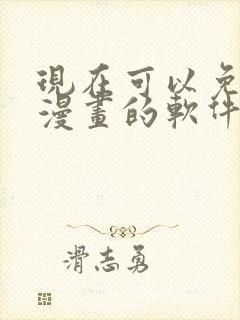 現在可以免
漫畫的軟件
滑志勇